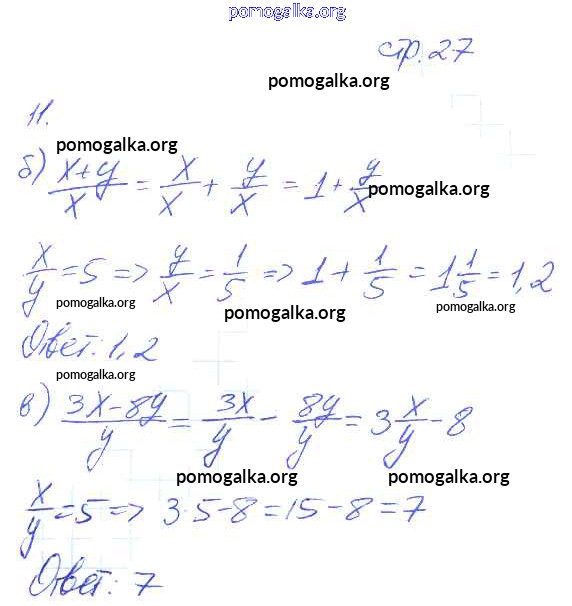 pomogalka.org
стр. 27
pomogalka.org
11.
pomogalka.org
б) (x+y)/x = x/x + y/x = 1 + y/x
pomogalka.org
x/y = 5 => y/x = 1/5 => 1 + 1/5 = 1 1/5 = 1,2
pomogalka.org pomogalka.org pomogalka.org
Ответ: 1,2
pomogalka.org
в) (3x-8y)/y = 3x/y - 8y/y = 3 x/y - 8
pomogalka.org pomogalka.org
x/y = 5 => 3·5-8=15-8=7
Ответ: 7